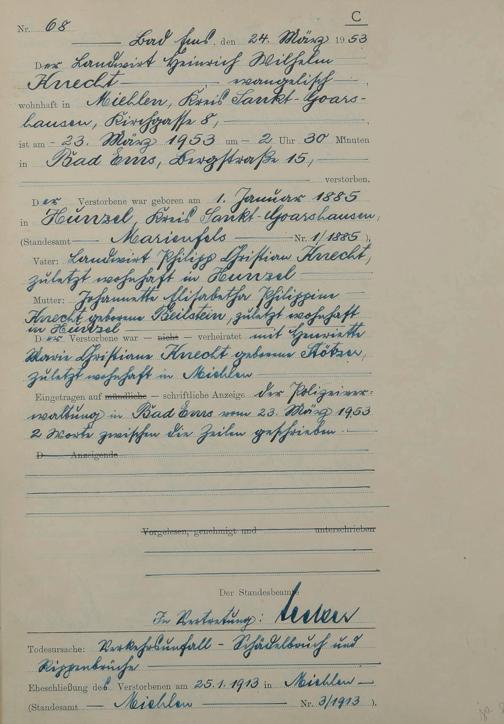 C
Nr. 68
Bad Ems, den 24. März 1953
Der Landwirt Heinrich Wilhelm
Knecht evangelisch,
wohnhaft in Miehlen, Kreis Sankt-Goars-
hausen, Kirchgasse 8,
ist am - 23. März 1953 um - 2 Uhr 30 Minuten
in Bad Ems, Bergstraße 15,
verstorben.
Der Verstorbene war geboren am 1. Januar 1885
in Hunzel, Kreis Sankt-Goarshausen,
(Standesamt Marienfels Nr. 1/1885).
Vater: Landwirt Philipp Christian Knecht,
zuletzt wohnhaft in Hunzel
Mutter: Johannette Elisabetha Philippine
Knecht geborene Beilstein, zuletzt wohnhaft
in Hunzel
Der Verstorbene war — nicht — verheiratet mit Henriette
Marie Christiane Knecht geborene Stötzer,
zuletzt wohnhaft in Miehlen
Eingetragen auf mündliche — schriftliche Anzeige der Polizeiver-
waltung in Bad Ems vom 23. März 1953
2 Worte zwischen die Zeilen geschrieben.
D Anzeigende
Vorgelesen, genehmigt und unterschrieben
Der Standesbeamte
In Vertretung:
Todesursache: Verkehrsunfall - Schädelbruch und
Rippenbrüche
Eheschließung des Verstorbenen am 25.1.1913 in Miehlen
(Standesamt Miehlen Nr. 3/1913).